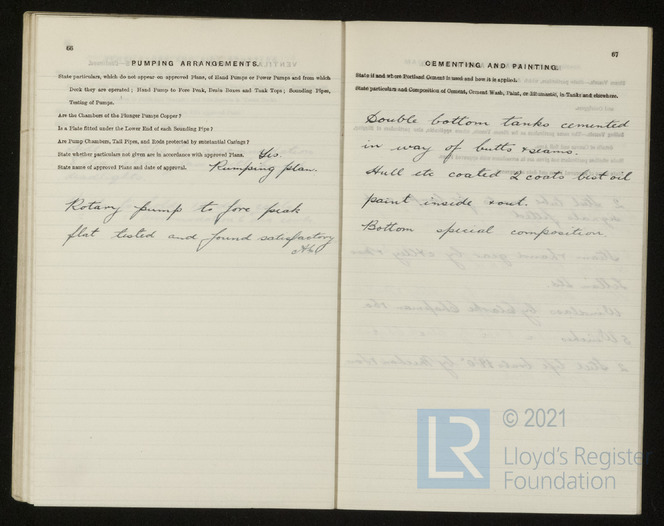 66
PUMPING ARRANGEMENTS.
State particulars, which do not appear on approved Plans, of Hand Pumps or Power Pumps and from which
Deck they are operated; Hand Pump to Fore Peak, Drain Boxes and Tank Tops; Sounding Pipes,
Testing of Pumps.
Are the Chambers of the Plunger Pumps Copper?
Is a Plate fitted under the Lower End of each Sounding Pipe?
Are Pump Chambers, Tail Pipes, and Rods protected by substantial Casings?
State whether particulars not given are in accordance with approved Plans. Yes.
State name of approved Plans and date of approval. Pumping plan.
Rotary pump to fore peak
flat tested and found satisfactory
67
CEMENTING AND PAINTING.
State if and where Portland Cement is used and how it is applied.
State particulars and Composition of Cement, Cement Wash, Paint, or Bitumastic, in Tanks and elsewhere.
Double bottom tanks cemented
in way of butts & seams.
Hull etc coated 2 coats best oil
paint inside & out.
Bottom special composition.
LR
© 2021
Lloyd's Register
Foundation